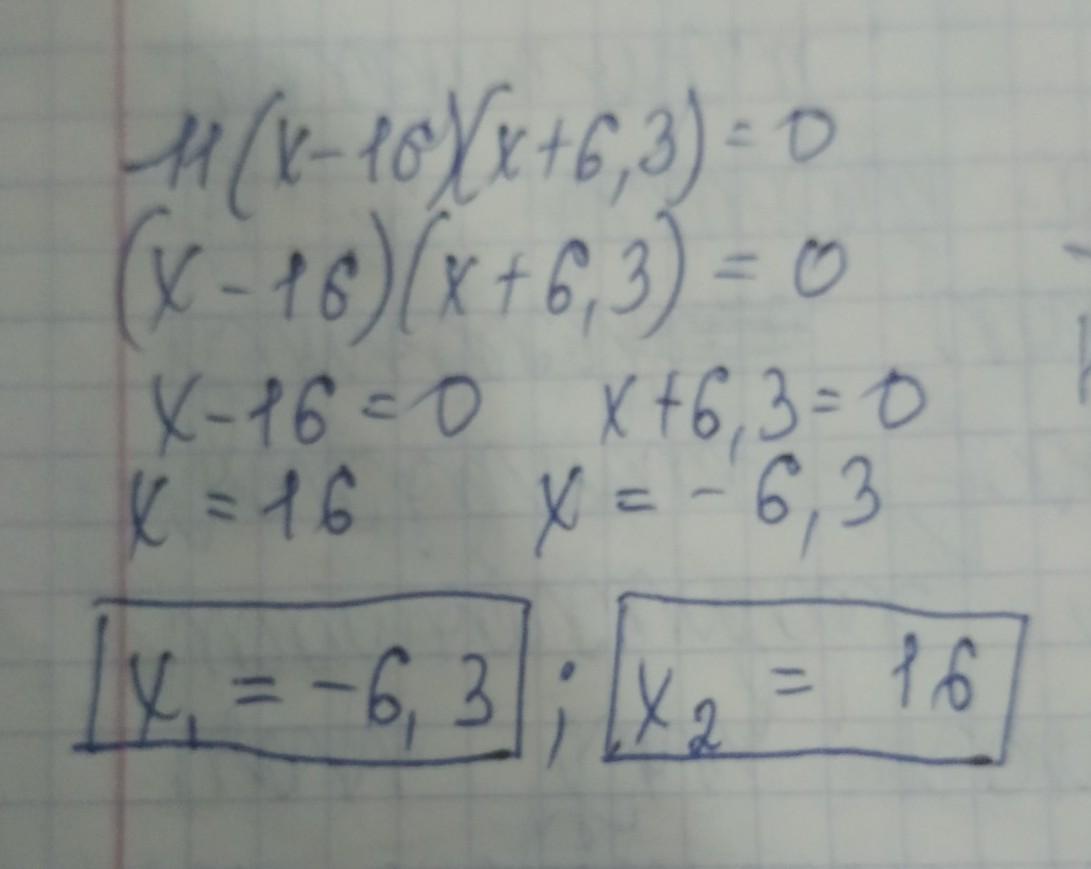 -11(x-16)(x+6,3)=0
(x-16)(x+6,3)=0
x-16=0 x+6,3=0
x=16 x=-6,3
x₁=-6,3; x₂=16